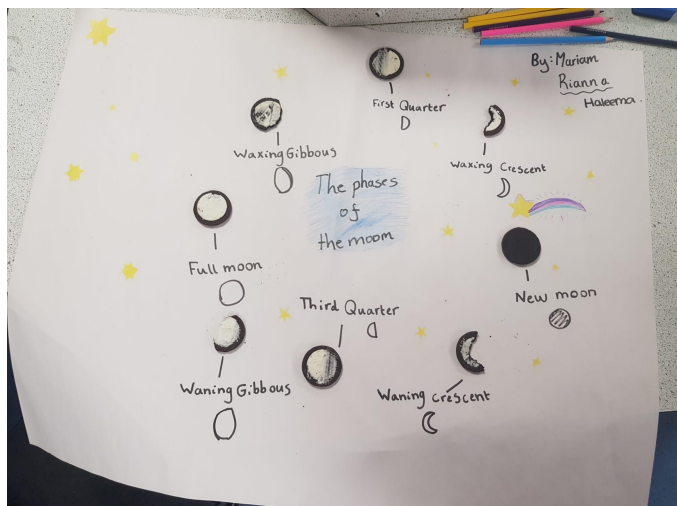 By: Mariam
Rianna
Haleema
First Quarter
Waxing Gibbous
Waxing Crescent
The phases
of
the moom
Full moon
New moon
Third Quarter
Waning Gibbous
Waning crescent